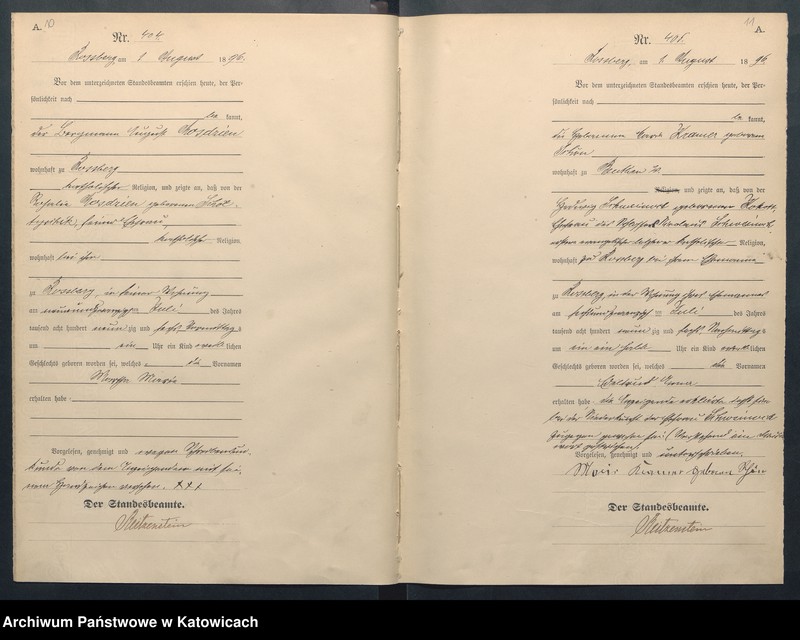 A. 10
Nr. 404.
Rossberg am 1 August 1896.
Vor dem unterzeichneten Standesbeamten erschien heute, der Per-
sönlichkeit nach
kannt,
der Bergmann August Gosdzien
wohnhaft zu Rossberg
katholischer Religion, und zeigte an, daß von der
Gosdzien geborenen
seiner Ehefrau,
katholischer Religion,
wohnhaft bei ihm
zu Rossberg, in seiner Wohnung
am neunundzwanzigsten Juli des Jahres
tausend acht hundert neunzig und sechs Vormittags
um ein Uhr ein Kind weiblichen
Geschlechts geboren worden sei, welches die Vornamen
Martha Maria
erhalten habe
Vorgelesen, genehmigt und wegen Schreibensun-
kunde von dem Anzeigenden mit sei-
nem Handzeichen versehen. +++
Der Standesbeamte.
Reitzenstein
11 A.
Nr. 405.
Rossberg, am 1. August 1896
Vor dem unterzeichneten Standesbeamten erschien heute, der Per-
sönlichkeit nach
kannt,
die Hebamme Marie Kramer geborene
Schön
wohnhaft zu Beuthen
Religion, und zeigte an, daß von der
Hedwig geborenen
Ehefrau des
katholischer Religion,
wohnhaft zu Rossberg bei ihrem Ehemanne
zu Rossberg, in der Wohnung ihres Ehemannes
am Juli des Jahres
tausend acht hundert neunzig und sechs Nachmittags
um ein ein halb Uhr ein Kind weiblichen
Geschlechts geboren worden sei, welches die Vornamen
erhalten habe die Anzeigende erklärte daß sie
bei der Niederkunft der Ehefrau
zugegen gewesen sei.
Vorgelesen, genehmigt und unterschrieben.
Marie Kramer geborene Schön
Der Standesbeamte.
Reitzenstein
Archiwum Państwowe w Katowicach